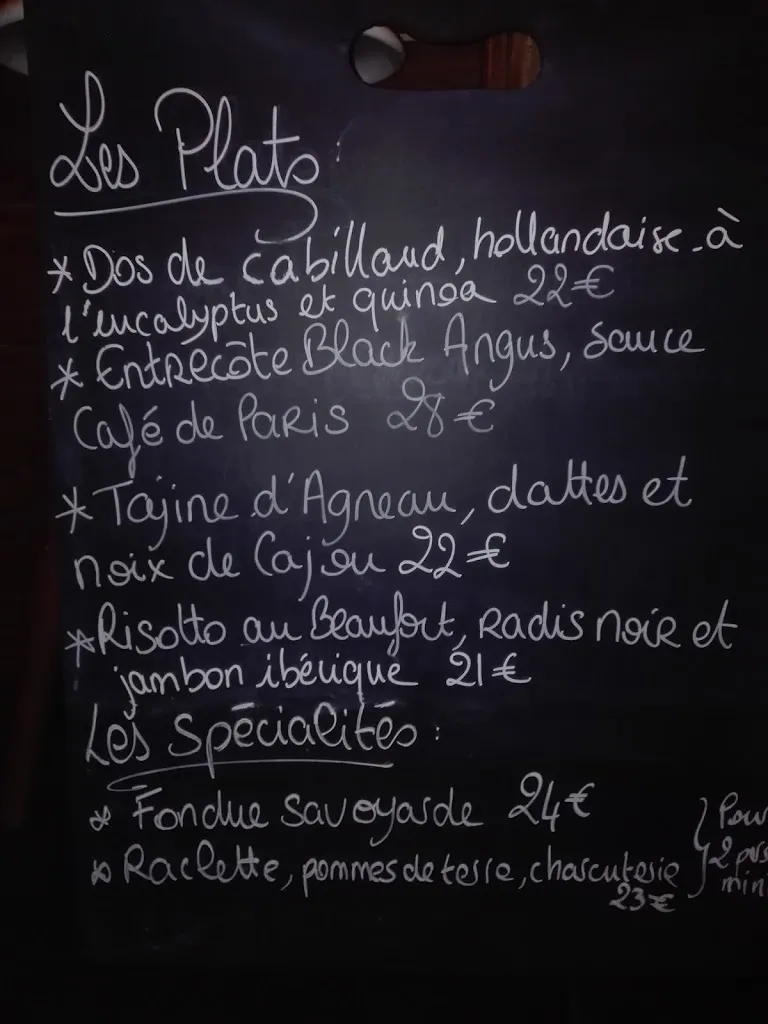 Les Plats:
* Dos de cabillaud, hollandaise à
l'eucalyptus et quinoa 22€
* Entrecôte Black Angus, sauce
Café de Paris 28€
* Tajine d'Agneau, dattes et
noix de Cajou 22€
* Risotto au Beaufort, Radis noir et
jambon ibérique 21€
Les Spécialités:
* Fondue Savoyarde 24€
* Raclette, pommes de terre, charcuterie
23€
} Pour
2 pers
mini